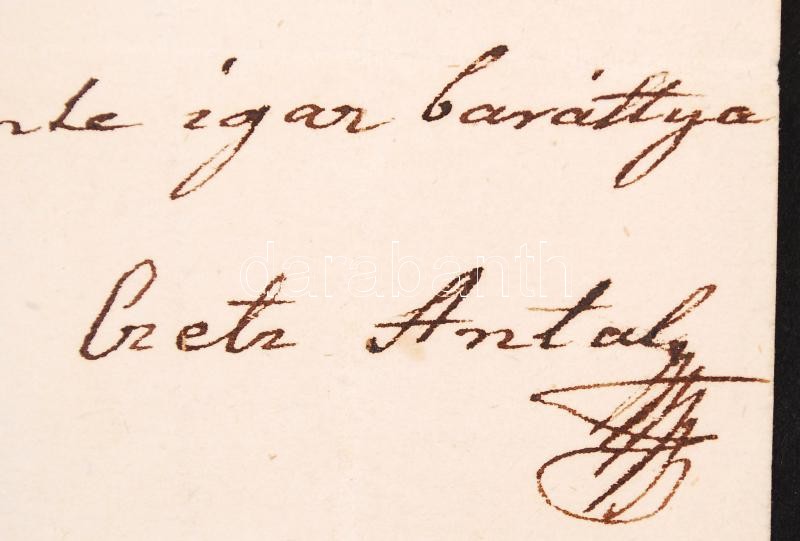 igaz baráttya
Czetz Antal
darabanth